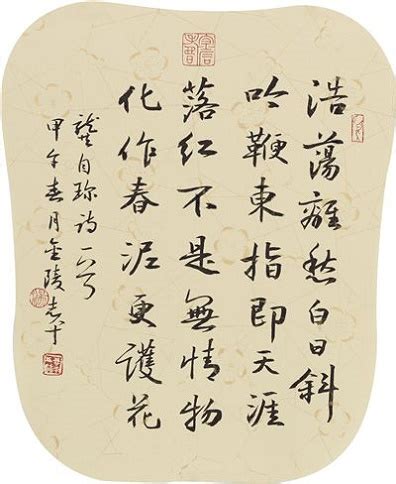 浩蕩離愁白日斜
吟鞭東指即天涯
落红不是無情物
化作春泥更護花
龔自珍诗一首
甲午春月金陵